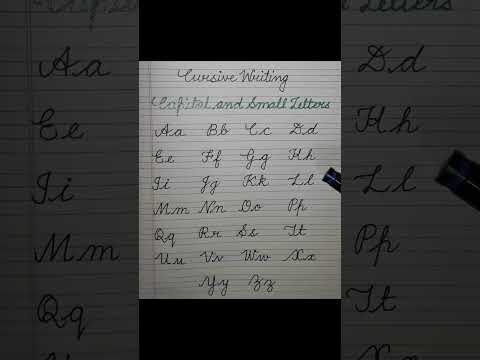 Cursive Writing
Capital and Small Letters
Aa Bb Cc Dd
Ee Ff Gg Hh
Ii Jj Kk Ll
Mm Nn Oo Pp
Qq Rr Ss Tt
Uu Vv Ww Xx
Yy Zz